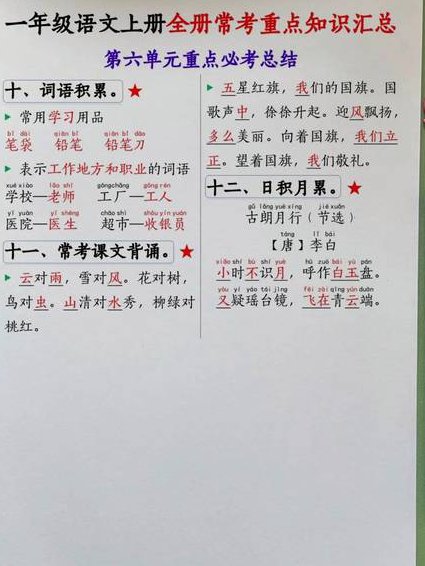 一年级语文上册全册常考重点知识汇总
第六单元重点必考总结
十、词语积累。★
▶ 常用学习用品
bǐ dài qiān bǐ qiān bǐ dāo
笔袋 铅笔 铅笔刀
▶ 表示工作地方和职业的词语
xué xiào lǎo shī gōngchǎng gōng rén
学校—老师 工厂—工人
yī yuàn yī shēng chāo shì shōu yín yuán
医院—医生 超市—收银员
十一、常考课文背诵。★
▶ 云对雨，雪对风。花对树，
鸟对虫。山清对水秀，柳绿对
桃红。
▶ 五星红旗，我们的国旗。国
歌声中，徐徐升起。迎风飘扬，
多么美丽。向着国旗，我们立
正。望着国旗，我们敬礼。
十二、日积月累。★
gǔ lǎng yuè xíng jié xuǎn
古朗月行（节选）
táng lǐ bái
【唐】李白
xiǎo shí bù shí yuè hū zuò bái yù pán
小时不识月，呼作白玉盘。
yòu yí yáo tái jìng fēi zài qīng yún duān
又疑瑶台镜，飞在青云端。